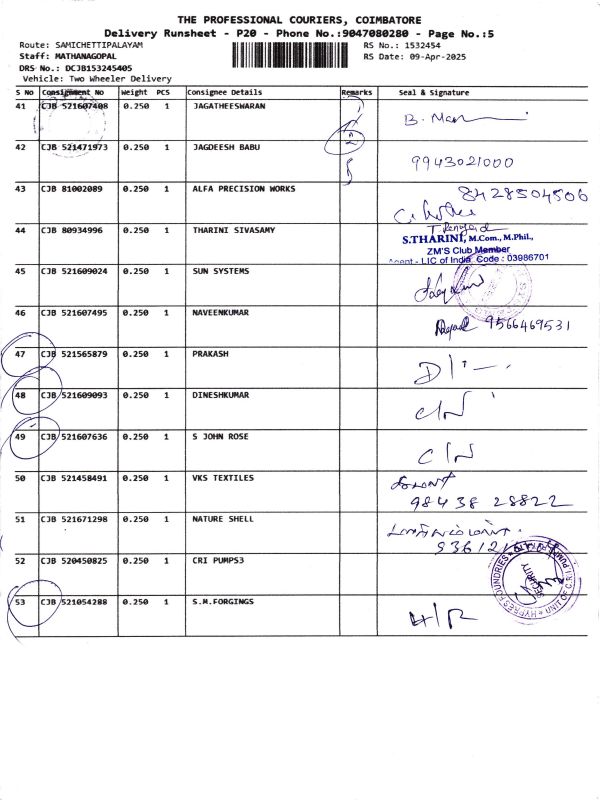 THE PROFESSIONAL COURIERS, COIMBATORE
Delivery Runsheet - P20 - Phone No.:9047080280 - Page No.:5
Route: SAMICHETTIPALAYAM RS No.: 1532454
Staff: MATHANAGOPAL RS Date: 09-Apr-2025
DRS No.: DCJB153245405
Vehicle: Two Wheeler Delivery
S No Consignment No Weight PCS Consignee Details Remarks Seal & Signature
41 CJB 521607408 0.250 1 JAGATHEESWARAN B.
42 CJB 521471973 0.250 1 JAGDEESH BABU 9943021000
43 CJB 81002089 0.250 1 ALFA PRECISION WORKS 8428504506
44 CJB 80934996 0.250 1 THARINI SIVASAMY
S.THARINI, M.Com., M.Phil.,
ZM'S Club Member
Agent - LIC of India Code : 03986701
45 CJB 521609024 0.250 1 SUN SYSTEMS
46 CJB 521607495 0.250 1 NAVEENKUMAR 9566469531
47 CJB 521565879 0.250 1 PRAKASH D/
48 CJB 521609093 0.250 1 DINESHKUMAR C/N
49 CJB 521607636 0.250 1 S JOHN ROSE C/N
50 CJB 521458491 0.250 1 VKS TEXTILES
98438 28822
51 CJB 521671298 0.250 1 NATURE SHELL
52 CJB 520450825 0.250 1 CRI PUMPS3
SECURITY
53 CJB 521054288 0.250 1 S.M.FORGINGS